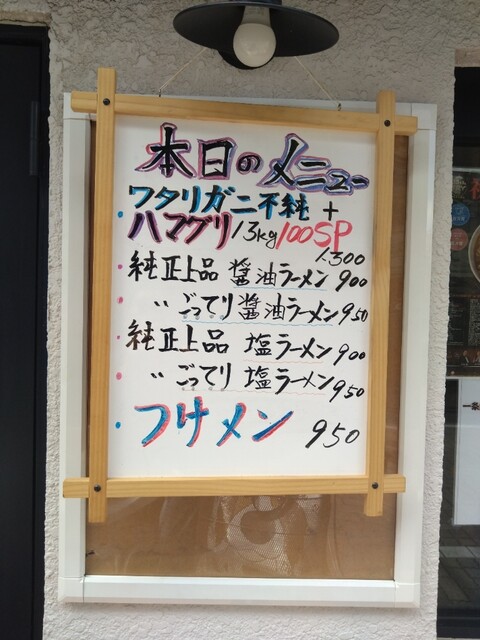 本日のメニュー
ワタリガニ不純 +
ハマグリ13kg100SP
1.300
・純正上品 醤油ラーメン 900
・〃 ごってり醤油ラーメン950
・純正上品 塩ラーメン 900
・〃 ごってり 塩ラーメン950
・つけメン 950